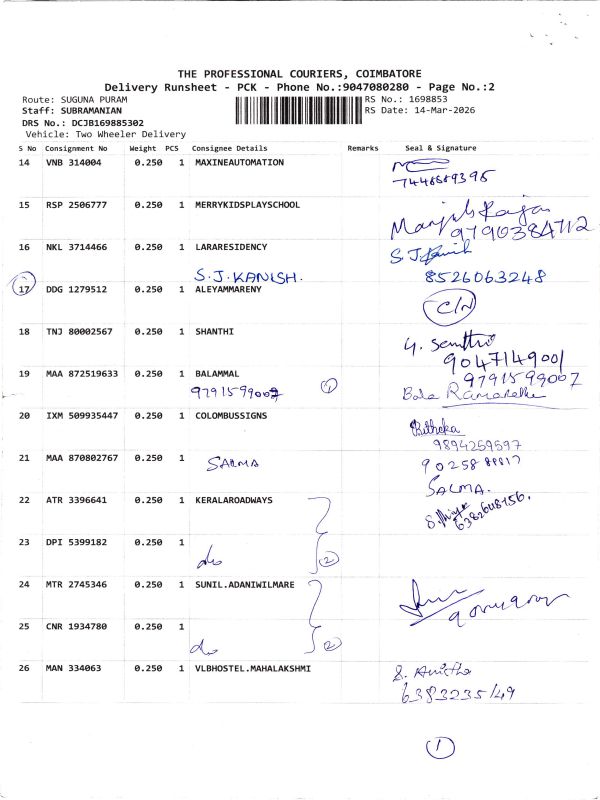 THE PROFESSIONAL COURIERS, COIMBATORE
Delivery Runsheet - PCK - Phone No.:9047080280 - Page No.:2
Route: SUGUNA PURAM
RS No.: 1698853
Staff: SUBRAMANIAN
RS Date: 14-Mar-2026
DRS No.: DCJB169885302
Vehicle: Two Wheeler Delivery
S No Consignment No Weight PCS Consignee Details Remarks Seal & Signature
14 VNB 314004 0.250 1 MAXINEAUTOMATION
15 RSP 2506777 0.250 1 MERRYKIDSPLAYSCHOOL
9790384712
16 NKL 3714466 0.250 1 LARARESIDENCY
S.J.KANISH. 8526063248
17 DDG 1279512 0.250 1 ALEYAMMARENY
C/N
18 TNJ 80002567 0.250 1 SHANTHI
9047149001
19 MAA 872519633 0.250 1 BALAMMAL
9791599007
9791599007 1 Bala
20 IXM 509935447 0.250 1 COLOMBUSSIGNS
9894259597
21 MAA 870802767 0.250 1
SALMA
SALMA.
22 ATR 3396641 0.250 1 KERALAROADWAYS
23 DPI 5399182 0.250 1
do 2
24 MTR 2745346 0.250 1 SUNIL.ADANIWILMARE
25 CNR 1934780 0.250 1
do 2
26 MAN 334063 0.250 1 VLBHOSTEL.MAHALAKSHMI
S. Anitha
6383235149
1